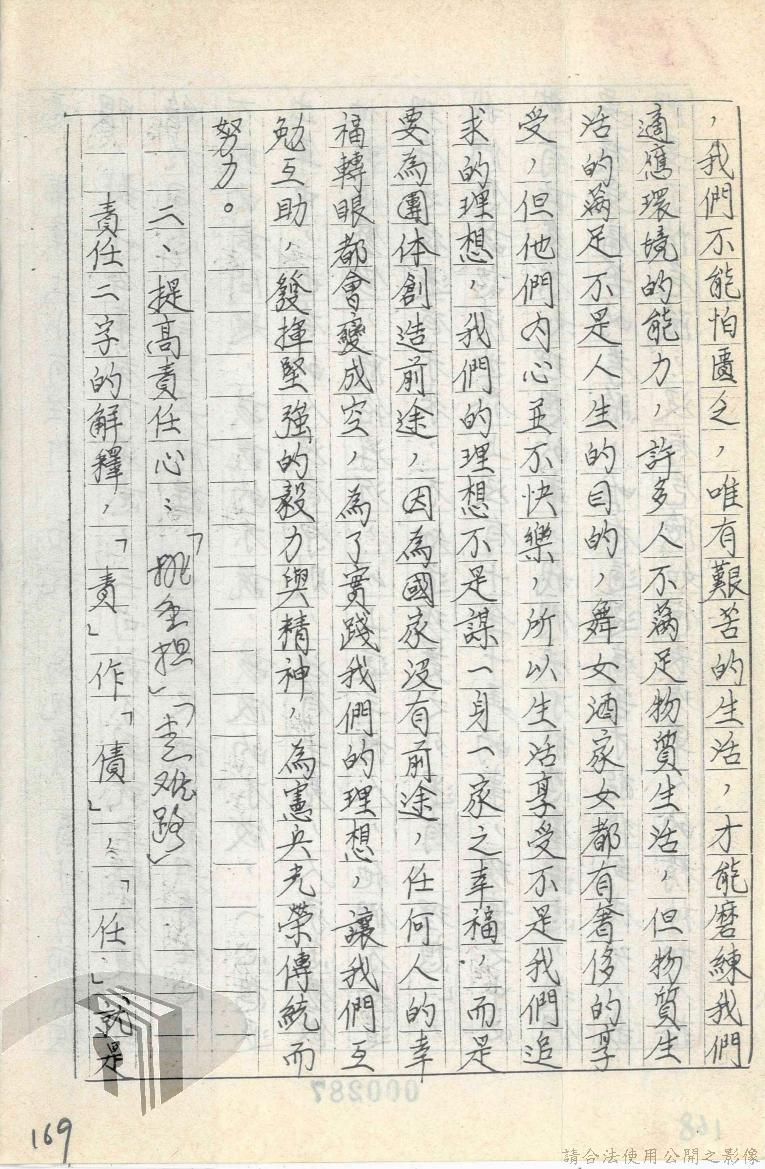 ，我們不能怕匱乏，唯有艱苦的生活，才能磨練我們
適應環境的能力，許多人不滿足物質生活，但物質生
活的滿足不是人生的目的，舞女酒家女都有奢侈的享
受，但他們內心並不快樂，所以生活享受不是我們追
求的理想，我們的理想不是謀一身一家之幸福，而是
要為團体創造前途，因為國家沒有前途，任何人的幸
福轉眼都會變成空，為了實踐我們的理想，讓我們互
勉互助，發揮堅強的毅力與精神，為憲兵光榮傳統而
努力。
二、提高責任心：「挑重担」「走难路」
責任二字的解釋，「責」作「債」，「任」就是
000287
169
168
請合法使用公開之影像